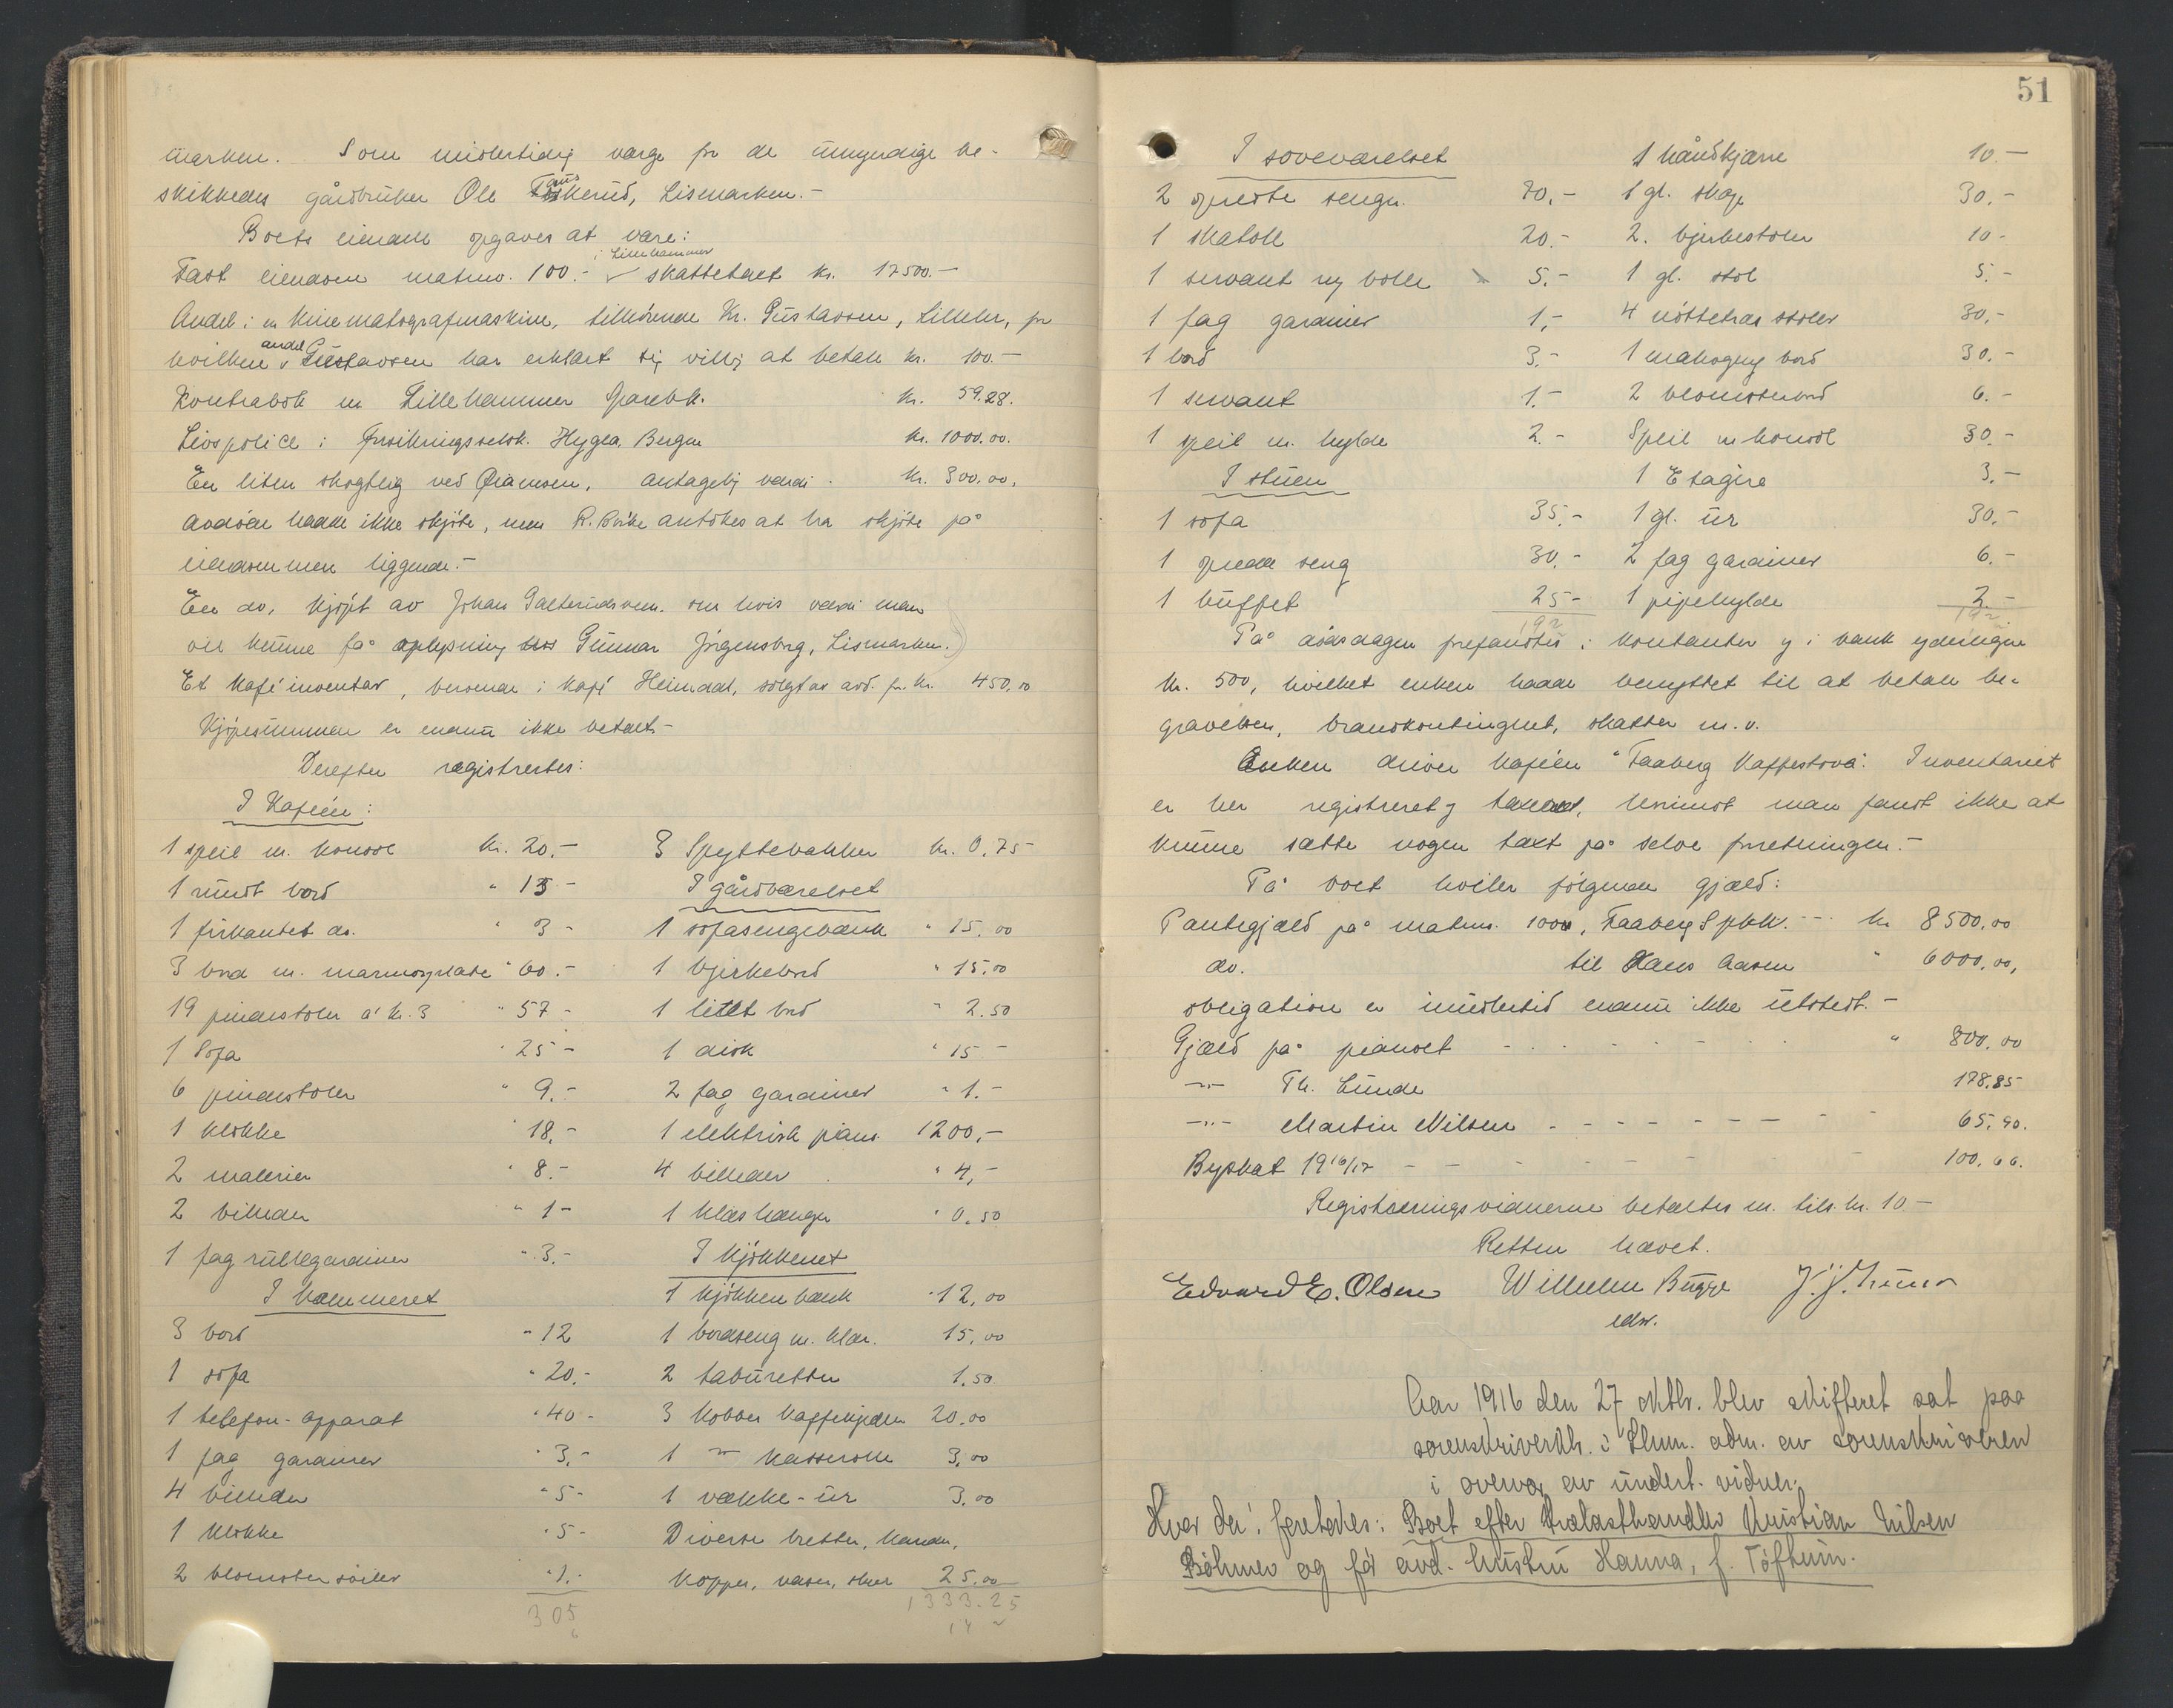 marken. Som midlertidig verge for de umyndige be-
skikkedes gårdbruker Ole Fauskerud, Lismarken.-
Boets eiendele opgaves at være:
i Lillehammer
Fast eiendom matrno. 100.- skattetaxt kr. 17500.-
Andel i en kinematografmaskine, tilhörende Kr. Gustavsen, Lillehr, for
hvilken andel Gustavsen har erklært sig villig at betale kr. 100.-
Kontrabok m Lillehammer Sparebk. kr. 59.28.
Livspolice i Forsikringsselsk. Hygea, Bergen kr. 1000.00.
En liten skogteig ved antagelig værdi kr. 300.00.
avdöde hadde ikke skjöte, men R. antokes at ha skjöte på
eiendommen liggende.-
En do. kjöpt av Johan om hvis værdi man
vil kunne få oplysning hos Gunnar Jörgensborg, Lismarken.
Et kafé inventar, beroende i kafé Heimdal, solgt av avd. for kr. 450.00
Kjöpesummen er endnu ikke betalt.-
Derefter registrertes:
I Kaféen:
1 speil m. konsol kr. 20.-
1 rundt bord " 15-
1 firkantet do. " 3-
3 bord m. marmorplate " 60.-
19 pindestoler a' kr. 3 " 57-
1 Sofa " 25-
6 pindestoler " 9.-
1 klokke " 18.-
2 malerier " 8.-
2 billeder " 1-
1 fag rullegardiner " 3.-
I kammeret
3 bord " 12
1 sofa " 20.-
1 telefon-apparat " 40-
1 fag gardiner " 3.-
4 billeder " 5-
1 klokke " 5-
2 blomstersöiler " 1.-
305
3 Spyttebakker kr. 0.75
I gårdværelset
1 sofasengebænk " 15.00
1 bjerkebord " 15.00
1 litet bord " 2.50
1 disk " 15-
2 fag gardiner " 1.-
1 elektrisk piano 1200.-
4 billeder " 4.-
1 klæshænger " 0.50
I kjökkenet
1 kjökkenbænk " 12.00
1 bordseng m. klær. 15.00
2 taburetter 1.50
3 kobber kaffekjeder 20.00
1 " kasserolle 3.00
1 vække-ur 3.00
Diverse bretter, kander,
kopper, vaser, skeer 25.00
1333.25
51
I soveværelset
2 opredte senger. 70.-
1 skatoll 20.-
1 servant og bolle 5.-
1 fag gardiner 1.-
1 bord 3.-
1 servant 1.-
1 speil m. hylde 2.-
I stuen
1 sofa 35.-
1 opredt seng 30.-
1 buffet 25-
192
1 håndkjærre 10.-
1 gl. skap 30.-
2. bjerkestoler 10-
1 gl. stol 5.-
4 nöttetræs stoler 30.-
1 mahogny bord 30.-
2 blomsterbord 6.-
Speil m konsol 30.-
1 Etagère 3.-
1 gl. ur 30.-
2 fag gardiner 6.-
1 pipehylde 2.-
192
På dödsdagen forefandtes i kontanter og i bank ydeligere
kr. 500, hvilket enken hadde benyttet til at betale be-
gravelsen, brandkontingent, skatter m.v.
Enken driver kaféen "Faaberg Kaffestova". Inventariet
er her registreret og taxeret, hvorimot man fandt ikke at
kunne sætte nogen taxt på selve forretningen.-
På boet hviler fölgende gjæld:
Pantegjæld på matrno. 100, Faaberg Spbk. - kr 8500.00
do. til Hans Aasen " 6000.00,
obligation er imidlertid endnu ikke utstedt.-
Gjæld på pianoet - - - " 800.00
-"- Th. Lunde 178.85
-"- Martin Nilsen - - - - 65.90.
Byskat 1916/17 - - - 100.66.
Registreringsvidnerne betaltes m. tils. kr. 10-
Retten hævet.
Edvard E. Olsen Wilhelm Bugge
edsv.
Aar 1916 den 27 oktbr. blev skifteret sat paa
sorenskriverktr. i Lhmr. adm. av sorenskriveren
i overvær av undert. vidner.
Hvor da: foretokes: Boet efter trælasthandler Kristian Nilsen
Böhmer og för avd. hustru Hanna, f. Töftum.